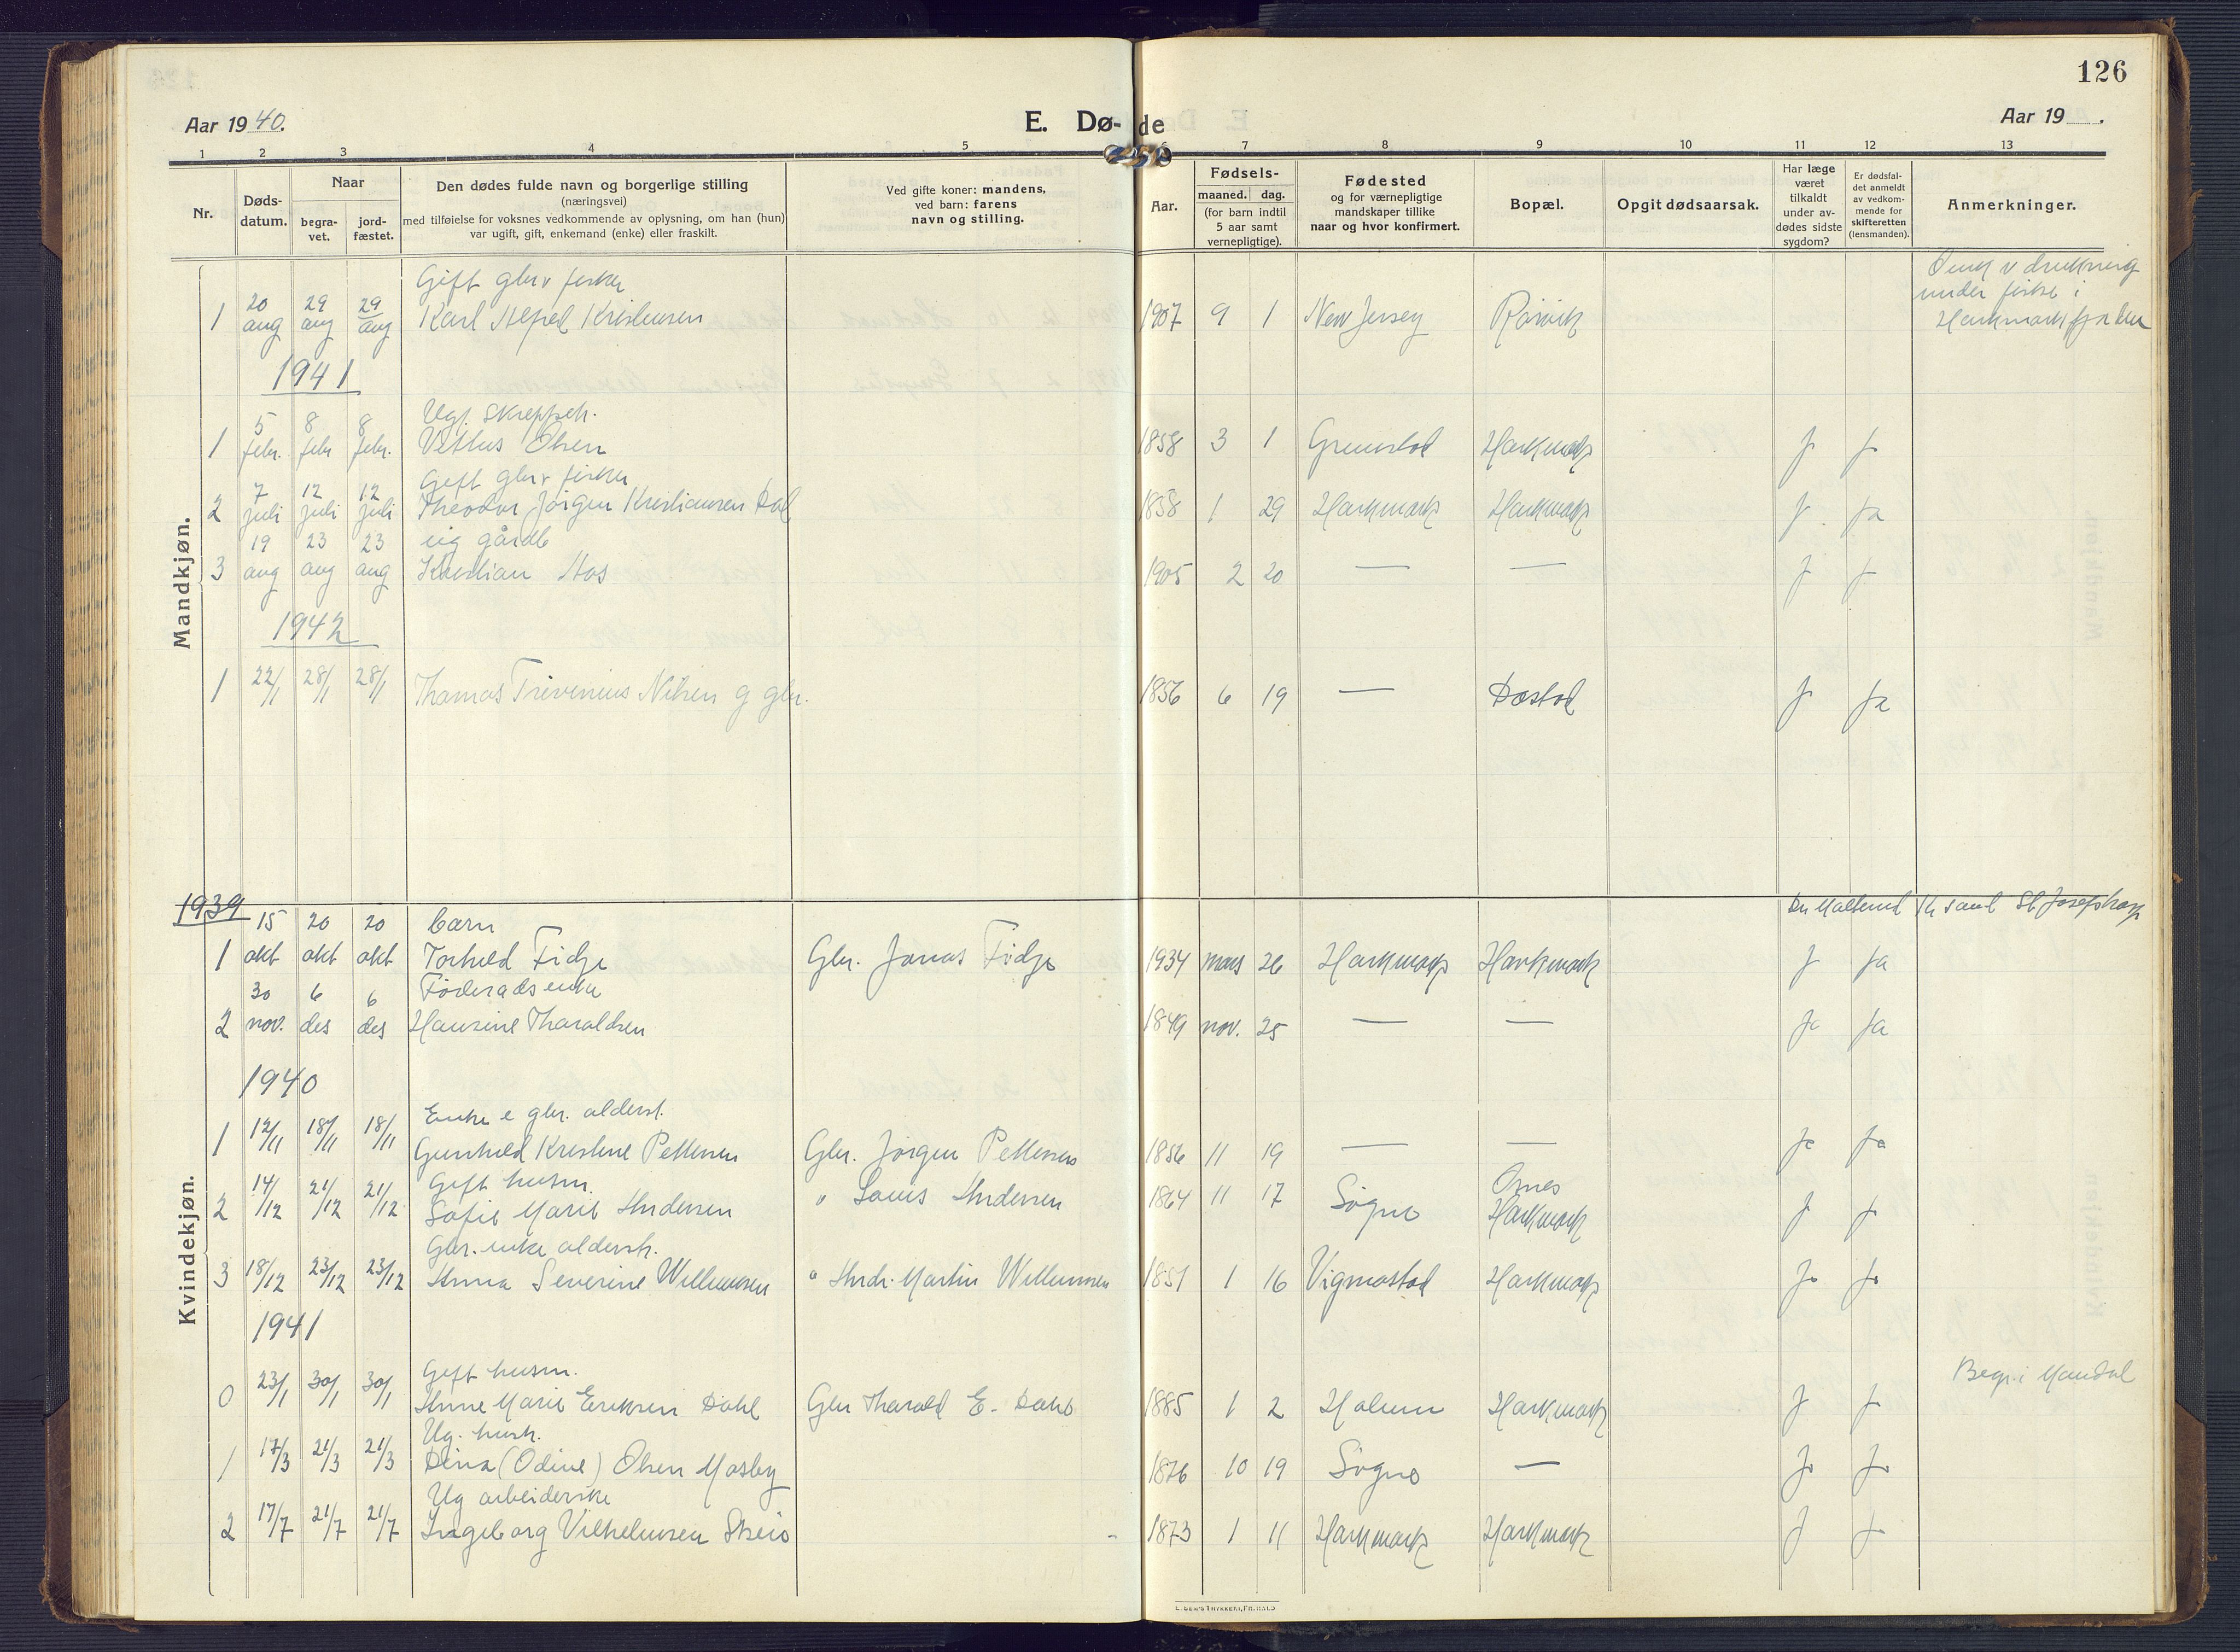 126
Aar 1940.
E. Dø-
de
Aar 19 .
1 2 3 4 5 6 7 8 9 10 11 12 13
Nr.
Døds-
datum.
Naar
begra-
vet.
jord-
fæstet.
Den dødes fulde navn og borgerlige stilling
(næringsvei)
med tilføielse for voksnes vedkommende av oplysning, om han (hun)
var ugift, gift, enkemand (enke) eller fraskilt.
Ved gifte koner: mandens,
ved barn: farens
navn og stilling.
Aar.
Fødsels-
maaned. dag.
(for barn indtil
5 aar samt
vernepligtige).
Fødested
og for værnepligtige
mandskaper tillike
naar og hvor konfirmert.
Bopæl.
Opgit dødsaarsak.
Har læge
været
tilkaldt
under av-
dødes sidste
sygdom?
Er dødsfal-
det anmeldt
av vedkom-
mende for
skifteretten
(lensmanden).
Anmerkninger.
Mandkjøn.
Gift gbr v fisker
1 20 aug 29 aug 29 aug Karl Alfred Kristensen 1907 9 1 New Jersey Rånvik
under fiske i
1941
Ugf.
1 5 febr. 8 febr 8 febr. Vettus Olsen 1858 3 1 Grimstad Harkmark J J
Gift gbr v fisker
2 7 juli 12 juli 12 juli Theodor Jörgen Kristiansen Dal 1858 1 29 Harkmark Harkmark J. Ja
ug gårdb
3 19 aug 23 aug 23 aug Kristian Aas 1905 2 20 — — J J
1942
1 22/1 28/1 28/1 Thomas Nilsen g gbr. 1856 6 19 — Dastad J Ja
Kvindekjøn.
1939
barn
1 15 okt 20 okt 20 okt Torhild Fidje Gbr. Jonas Fidje 1934 mars 26 Harkmark Harkmark J Ja
Föderads enke
2 30 nov. 6 des 6 des Hansine Tharaldsen 1849 nov. 25 — — Ja Ja
1940
Enke e gbr. alderst.
1 12/11 18/11 18/11 Gunhild Kristine Pettersen Gbr. Jörgen Pettersen 1856 11 19 — — Ja Ja
Gift husm.
2 14/12 21/12 21/12 Sofie Marie Andersen " Louis Andersen 1864 11 17 Sögne Osnes Harkmark J J
Gbr. enke alderstr.
3 18/12 23/12 23/12 Anna Severine Willumsen " Andr. Martin Willumsen 1851 1 16 Vigmostad Harkmark Ja Ja
1941
Gift husm.
0 23/1 30/1 30/1 Anne Marie Eriksen Dahl Gbr Tharald E. Dahl 1885 1 2 Holum Harkmark J J Begr. i Mandal
Ug. hush.
1 17/3 21/3 21/3 Dina (Odine) Olsen Mosby 1876 10 19 Sögne — Ja Ja
Ug arbeiderske
2 17/7 21/7 21/7 Ingeborg Vilhelmsen Skeie 1873 1 11 Harkmark Harkmark J J